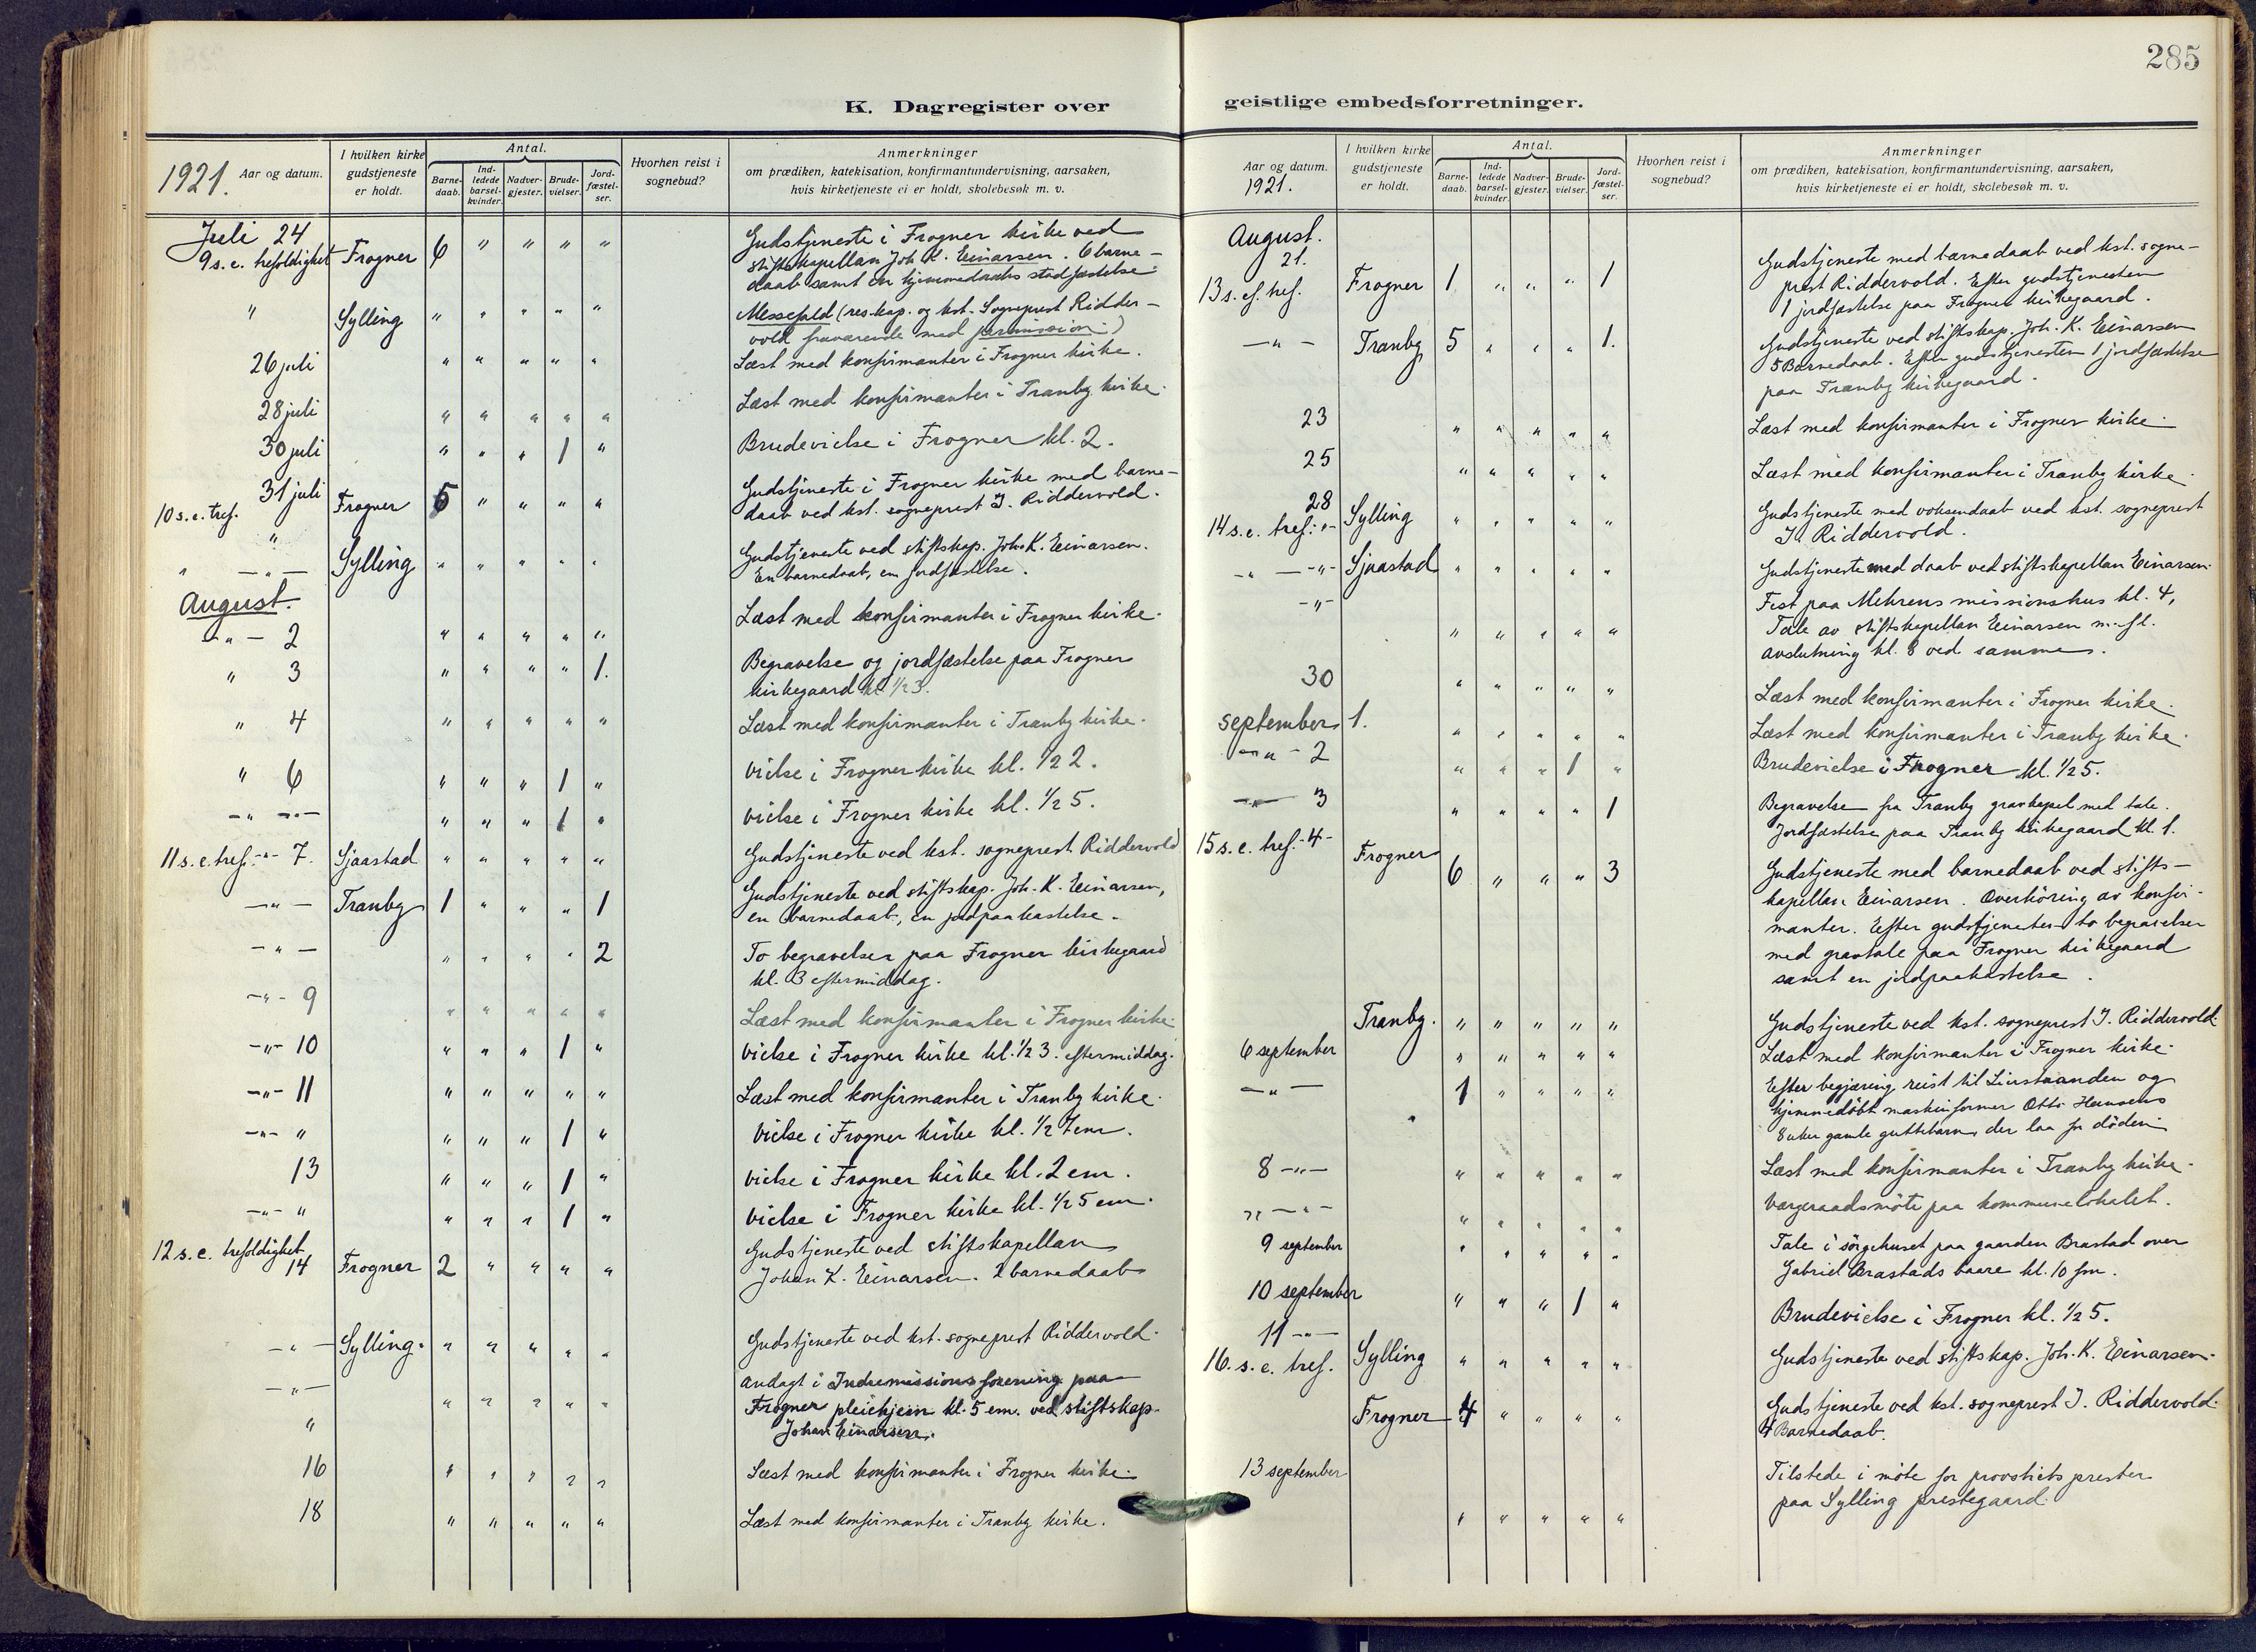 285
K. Dagregister over
geistlige embedsforretninger.
1921. Aar og datum.
I hvilken kirke gudstjeneste er holdt.
Antal.
Barne-daab.
Ind-ledede barsel-kvinder.
Nadver-gjester.
Brude-vielser.
Jord-fæstel-ser.
Hvorhen reist i sognebud?
Anmerkninger
om prædiken, katekisation, konfirmantundervisning, aarsaken,
hvis kirketjeneste ei er holdt, skolebesøk m. v.
Juli 24
9 s. e. trefoldighet Frogner 6 " " " " Gudstjeneste i Frogner kirke ved
stiftskapellan Joh. K. Einarsen. 6 barne-
daab samt en hjemmedaabs stadfæstelse.
" Sylling " " " " " Messefald (res. kap. og kst. Sogneprest Ridder-
vold fraværende med permission.)
26 juli " " " " " Læst med konfirmanter i Frogner kirke.
28 juli " " " " " Læst med konfirmanter i Tranby kirke.
30 juli " " " 1 " Brudevielse i Frogner kl. 2.
31 juli
10 s. e. tref. Frogner 5 " " " " Gudstjeneste i Frogner kirke med barne-
daab ved kst. sogneprest J. Riddervold.
" — " — Sylling " " " " " Gudstjeneste ved stiftskap. Joh. K. Einarsen.
En barnedaab, en jordfæstelse.
August.
— " — 2 " " " " " Læst med konfirmanter i Frogner kirke.
" 3 " " " " 1. Begravelse og jordfæstelse paa Frogner
kirkegaard kl. 1/2 3.
" 4 " " " " " Læst med konfirmanter i Tranby kirke.
" 6 " " " 1 " Vielse i Frogner kirke kl. 1/2 2.
— " — " — " " " 1 " Vielse i Frogner kirke kl. 1/2 5.
11 s. e. tref. — " — 7. Sjaastad " " " " " Gudstjeneste ved kst. sogneprest Riddervold
— " — Tranby 1 " " " 1 Gudstjeneste ved stiftskap. Joh. K. Einarsen,
en barnedaab, en jordpaakastelse.
— " — " " " " 2 To begravelser paa Frogner kirkegaard
kl. 3 eftermiddag.
— " — 9 " " " " " Læst med konfirmanter i Frogner kirke.
— " — 10 " " " 1 " Vielse i Frogner kirke kl. 1/2 3. eftermiddag.
— " — 11 " " " " " Læst med konfirmanter i Tranby kirke.
— " — " " " " 1 " Vielse i Frogner kirke kl. 1/2 7 em.
13 " " " 1 " Vielse i Frogner kirke kl. 2 em.
— " — " " " " 1 " Vielse i Frogner kirke kl. 1/2 5 em.
12 s. e. trefoldighet
14 Frogner 2 " " " " Gudstjeneste ved stiftskapellan
Johan K. Einarsen. 2 barnedaab
— " — Sylling. " " " " " Gudstjeneste ved kst. sogneprest Riddervold.
— " — " " " " " Andagt i Indremissionsforening paa
" Frogner pleiehjem kl. 5 em. ved stiftskap.
Johan Einarsen.
16 " " " " " Læst med konfirmanter i Frogner kirke.
18 " " " " " Læst med konfirmanter i Tranby kirke.
Aar og datum.
1921.
I hvilken kirke gudstjeneste er holdt.
Antal.
Barne-daab.
Ind-ledede barsel-kvinder.
Nadver-gjester.
Brude-vielser.
Jord-fæstel-ser.
Hvorhen reist i sognebud?
Anmerkninger
om prædiken, katekisation, konfirmantundervisning, aarsaken,
hvis kirketjeneste ei er holdt, skolebesøk m. v.
August.
21.
13 s. ef. tref. Frogner 1 " " " 1 Gudstjeneste med barnedaab ved kst. sogne-
prest Riddervold. Efter gudstjenesten
1 jordfæstelse paa Frogner kirkegaard.
— " — Tranby 5 " " " 1. Gudstjeneste ved stiftskap. Joh. K. Einarsen
5 Barnedaab. Efter gudstjenesten 1 jordfæstelse
paa Tranby kirkegaard.
23 " " " " " Læst med konfirmanter i Frogner kirke.
25 " " " " " Læst med konfirmanter i Tranby kirke.
28
14 s. e. tref. — " — Sylling " " " " " Gudstjeneste med voksendaab ved kst. sogneprest
J. Riddervold.
— " — " — Sjaastad " " " " " Gudstjeneste med daab ved stiftskapellan Einarsen.
— " — " " " " " Fest paa Mehrens missionshus kl. 4,
Tale av stiftskapellan Einarsen m. fl.
Avslutning kl. 8 ved samme.
30 " " " " " Læst med konfirmanter i Frogner kirke.
September 1. " " " " " Læst med konfirmanter i Tranby kirke.
— " — 2 " " " 1 " Brudevielse i Frogner kl. 1/2 5.
— " — 3 " " " " 1 Begravelse fra Tranby gravkapel med tale.
Jordfæstelse paa Tranby kirkegaard kl. 1.
15 s. e. tref. - 4 - Frogner 6 " " " 3 Gudstjeneste med barnedaab ved stifts-
kapellan Einarsen. Overhöring av konfir-
manter. Efter gudstjenesten to begravelser
med gravtale paa Frogner kirkegaard
samt en jordpaakastelse.
Tranby. " " " " " Gudstjeneste ved kst. sogneprest J. Riddervold.
6 september " " " " " Læst med konfirmanter i Frogner kirke.
— " — 1 " " " " Efter begjæring reist til Lierstranden og
hjemmedöbt maskinformer Otto Hansens
8 uker gamle guttebarn, der laa for döden
8 — " — " " " " " Læst med konfirmanter i Tranby kirke.
" — " — " " " " " Vergeraadsmöte paa kommunelokalet.
9 september " " " " " Tale i sörgehuset paa gaarden Brastad over
Gabriel Brastads baare kl. 10 fm.
10 september " " " 1 " Brudevielse i Frogner kl. 1/2 5.
11 — " —
16. s. e. tref. Sylling " " " " " Gudstjeneste ved stiftskap. Joh. K. Einarsen.
Frogner 4 " " " " Gudstjeneste ved kst. sogneprest J. Riddervold.
4 Barnedaab.
13 september " " " " " Tilstede i möte for provstiets prester
paa Sylling prestegaard.